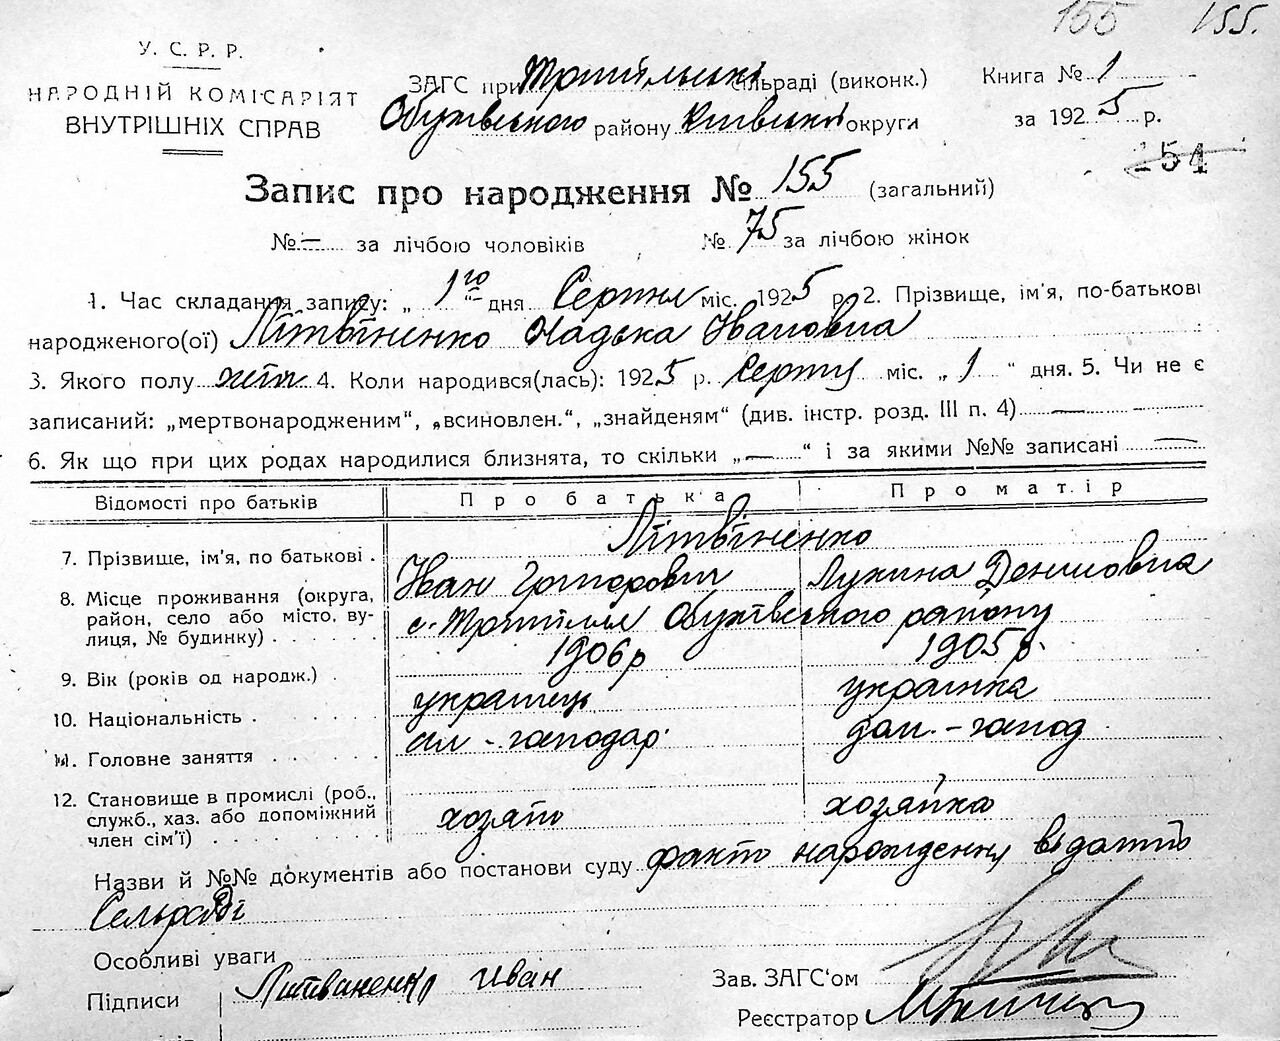 155 155.
У. С. Р. Р.
НАРОДНІЙ КОМІСАРІЯТ
ВНУТРІШНІХ СПРАВ
ЗАГС при Трипільські сільраді (виконк.)
Обухівського району Київської округи
Книга № 1
за 1925 р.
154
Запис про народження № 155 (загальний)
№ — за лічбою чоловіків № 75 за лічбою жінок
1. Час складання запису: „ 1го “ дня Серпня міс. 1925 р 2. Прізвище, ім'я, по-батькові
народженого(ої) Літвіненко Надька Івановна
3. Якого полу жін 4. Коли народився(лась): 1925 р. Серпня міс. „ 1 “ дня. 5. Чи не є
записаний: „мертвонародженим“, „всиновлен.“, „знайденям“ (див. інстр. розд. III п. 4) —
6. Як що при цих родах народилися близнята, то скільки „ — “ і за якими №№ записані —
Відомості про батьків Про батька Про матір
7. Прізвище, ім'я, по батькові . Літвіненко
Іван Григорович Лукина Денисовна
8. Місце проживання (округа,
район, село або місто, ву-
лиця, № будинку) . . . . .
с. Трипілля Обухівського району
9. Вік (років од народж.) . 1906р 1905р.
10. Національність . українець українка
11. Головне заняття . сіл - господар дом. - господ
12. Становище в промислі (роб.,
служб., хаз. або допоміжний
член сім'ї) . . . . .
хозяїн хозяйка
Назви й №№ документів або постанови суду факт народження
Сельраді
Особливі уваги
Підписи Литвиненко Иван
Зав. ЗАГС'ом
Реєстратор